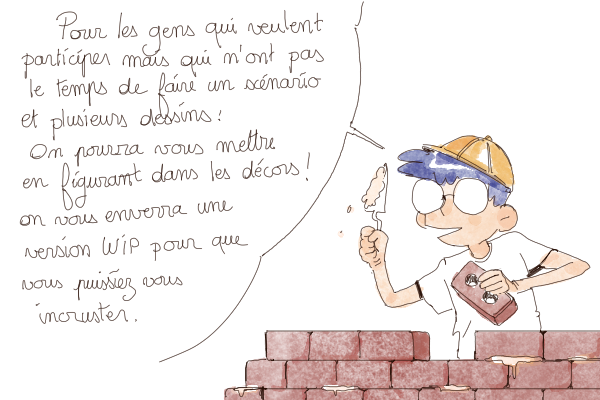 Pour les gens qui veulent
participer mais qui n'ont pas
le temps de faire un scénario
et plusieurs dessins !
On pourra vous mettre
en figurant dans les décors !
on vous enverra une
version WiP pour que
vous puissiez vous
incruster.